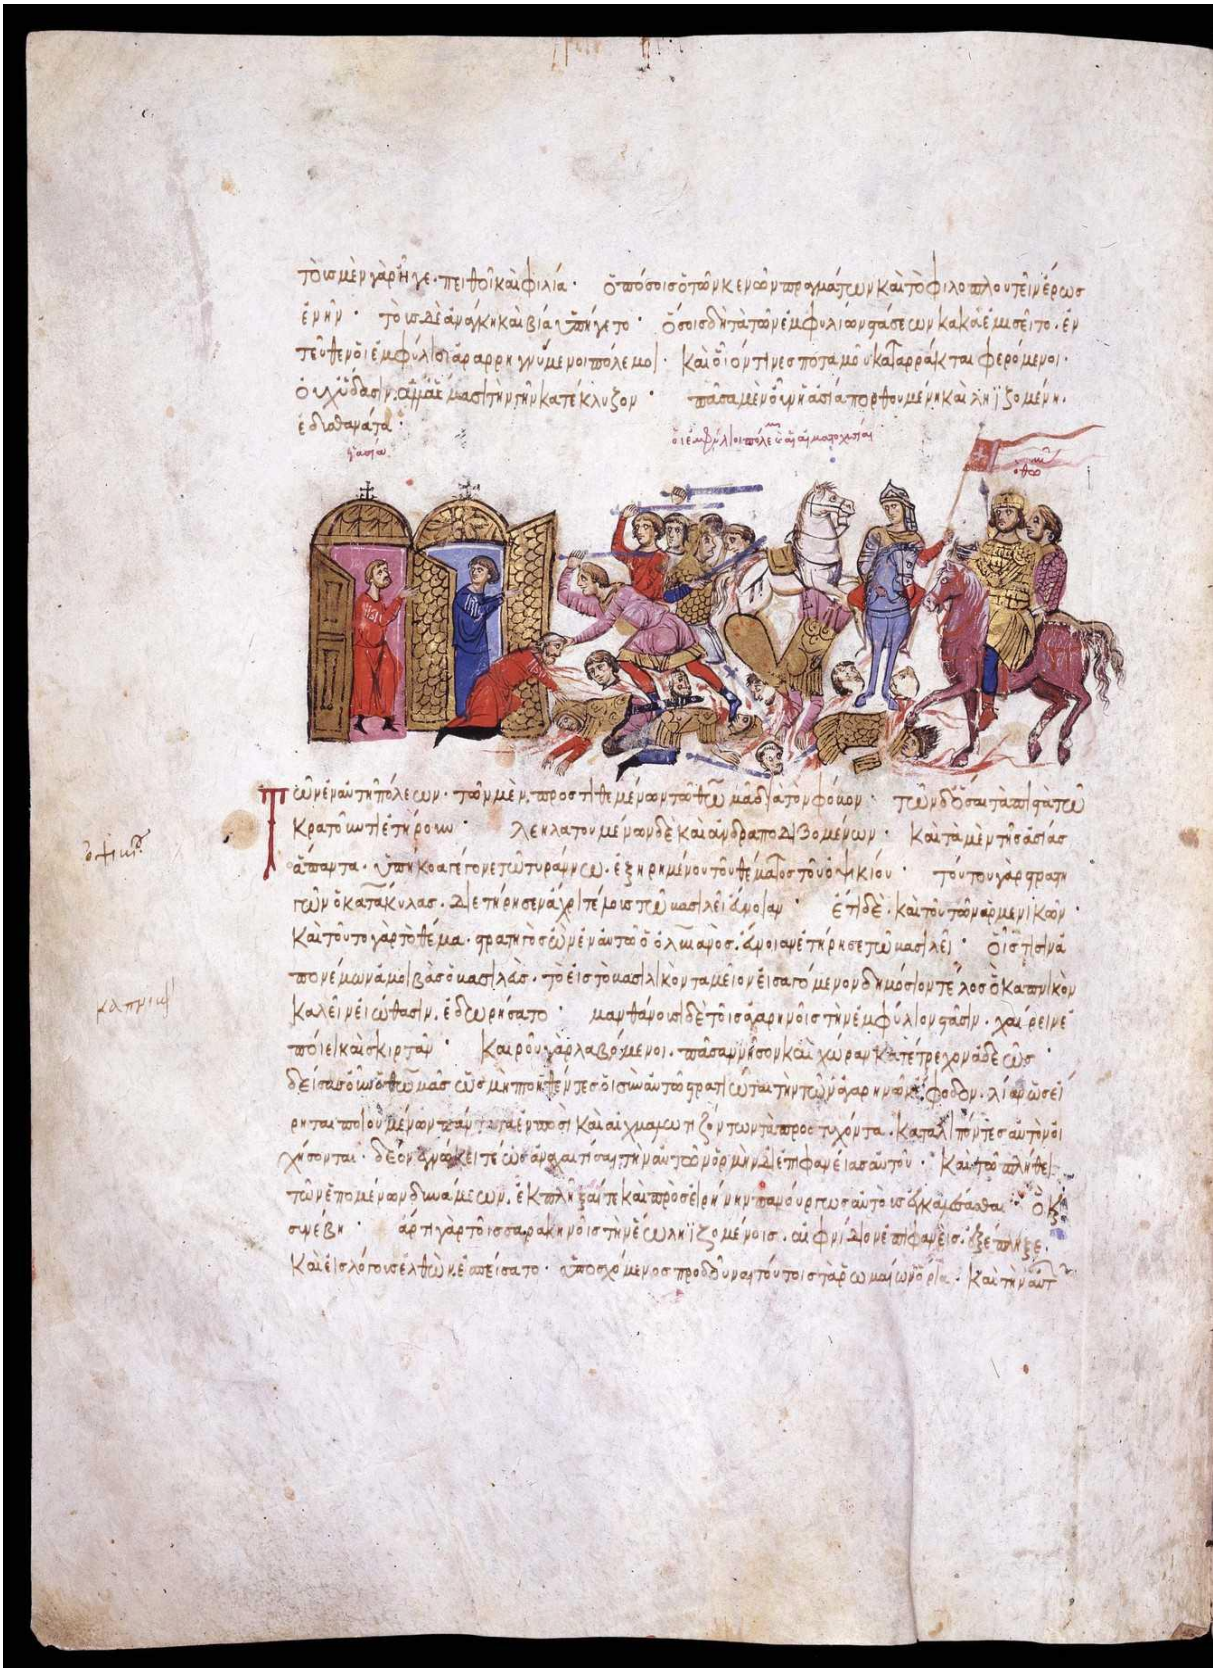 τοῖς μὲν γὰρ ἦγε. πειθοῖ καὶ φιλία· ὁπόσοις ὁ τῶν κενῶν πραγμάτων καὶ τὸ φιλοπλουτεῖν ἔρως
ἐνῆν· τοῖς δὲ ἀνάγκη καὶ βία ὑπήγετο· ὅσοις δὴ τὰ τῶν ἐμφυλίων στάσεων κακὰ ἐμισεῖτο. ἐν
τεῦθεν οἱ ἐμφύλιοι ἀναρρηγνύμενοι πόλεμοι. καὶ οἱονεί τινες ποταμοῦ καταρράκται φερόμενοι.
οὐχ ὕδασιν. αἵμασι τὴν γῆν κατέκλυζον· πᾶσα μὲν οὖν ἡ ἀσία πορθουμένη καὶ ληϊζομένη.
ἐδιαθανάτα·
ἡ ἀσία
οἱ ἐμφύλιοι πόλεμοι καὶ αἱματοχυσίαι
ὁ θωμᾶς
Τῶν ἐν αὐτῇ πόλεων. τῶν μὲν. προστιθεμένων τῶ θωμᾶ διὰ τὸν φόνον· τῶν δ' ὅσαι τὰ πιστὰ τῶ
κρατοῦντι ἐτήρουν· λεηλατουμένων δὲ καὶ ἀνδραποδιζομένων· καὶ τὰ μὲν τῆς ἀσίας
ἅπαντα. ὑπήκοα γέγονε τῶ τυράννω. ἐξηρημένου τοῦ θέματος τοῦ ὀψικίου· τούτου γὰρ στρατη
γῶν ὁ κατάκυλας. διετήρησεν ἄχρι τέλους τῶ βασιλεῖ εὔνοιαν· ἔτι δὲ. καὶ τοῦ τῶν ἀρμενικῶν·
καὶ τοῦτο γὰρ τὸ θέμα. στρατηγὸς ὢν ἐν αὐτῶ ὁ ὀλβιανὸς. εὔνοιαν ἐτήρησε τῶ βασιλεῖ· οἷστισιν ἀ
πονέμων ἀμοιβὰς ὁ βασιλεὺς. τὸ εἰς τὸ βασιλικὸν ταμεῖον εἰσαγόμενον δημόσιον τέλος ὃ καπνικὸν
καλεῖν εἰώθασιν. ἐδωρήσατο· μανθάνουσι δὲ τοῖς ἀγαρηνοῖς τὴν ἐμφύλιον στάσιν. χαίρειν ἐ
ποίει καὶ σκιρτᾶν· καιροῦ γὰρ λαβόμενοι. πᾶσαν νῆσον καὶ χώραν κατέτρεχον ἀδεῶς·
δείσας οὖν ὁ θωμᾶς ὡς μήποτε
ρηται ποιουμένων πάντα τὰ ἐν ποσὶ καὶ αἰχμαλωτιζόντων τὰ προστυχόντα. καταλιπόντες αὐτὸν οἰ
χήσονται. δέον ἔγνωκεί τέως ἀναχαιτίσαι τὴν αὐτῶν ὁρμὴν δι' ἐπιφανείας αὐτοῦ· καὶ τῶ πλήθει
τῶν ἐπομένων δυνάμεων. ἐκπλῆξαί τε καὶ πρὸς εἰρήνην
συνέβη· ἄρτι γὰρ τοῖς σαρακηνοῖς τὴν ἕω ληϊζομένοις. αἰφνίδιον ἐπιφανεὶς. ἐξέπληξε.
καὶ εἰς λόγους ἐλθὼν ἐσπείσατο· ὑποσχόμενος προδοῦναι τούτοις τὰ ῥωμαίων ὅρια. καὶ τὴν αὐτ
ὀψίκιον
καπνικὸν